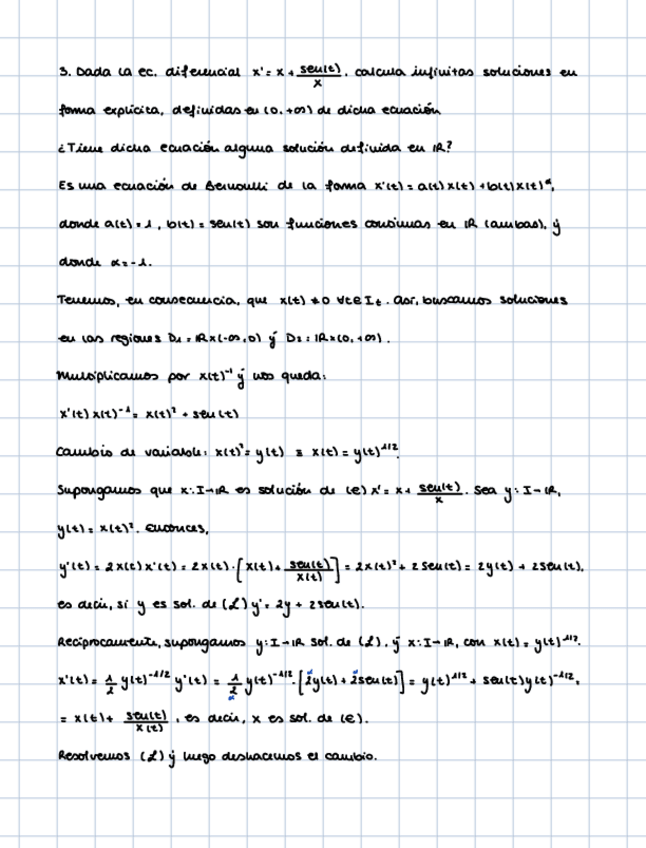 3. Dada la ec. diferencial x' = x + sen(t)/x, calcula infinitas soluciones en
forma explícita, definidas en (0,+∞) de dicha ecuación
¿Tiene dicha ecuación alguna solución definida en ℝ?
Es una ecuación de Bernoulli de la forma x'(t) = a(t)x(t) + b(t)x(t)^α,
donde a(t) = 1, b(t) = sen(t) son funciones continuas en ℝ (ambas), y
donde α = -1.
Tenemos, en consecuencia, que x(t) ≠ 0 ∀t∈I_t. Así, buscamos soluciones
en las regiones D₁ = ℝ×(-∞,0) y D₂ = ℝ×(0,+∞).
Multiplicamos por x(t)⁻¹ y nos queda:
x'(t) x(t)⁻¹ = x(t)² + sen(t)
Cambio de variable: x(t)² = y(t) ≡ x(t) = y(t)^1/2.
Supongamos que x: I→ℝ es solución de (e) x' = x + sen(t)/x. Sea y: I→ℝ,
y(t) = x(t)². Entonces,
y'(t) = 2x(t)x'(t) = 2x(t)·[x(t) + sen(t)/x(t)] = 2x(t)² + 2sen(t) = 2y(t) + 2sen(t),
es decir, si y es sol. de (L) y' = 2y + 2sen(t).
Recíprocamente, supongamos y: I→ℝ sol. de (L), y x: I→ℝ, con x(t) = y(t)^1/2.
x'(t) = 1/2 y(t)^-1/2 y'(t) = 1/2 y(t)^-1/2·[2y(t) + 2sen(t)] = y(t)^1/2 + sen(t)y(t)^-1/2,
= x(t) + sen(t)/x(t), es decir, x es sol. de (e).
Resolvemos (L) y luego deshacemos el cambio.